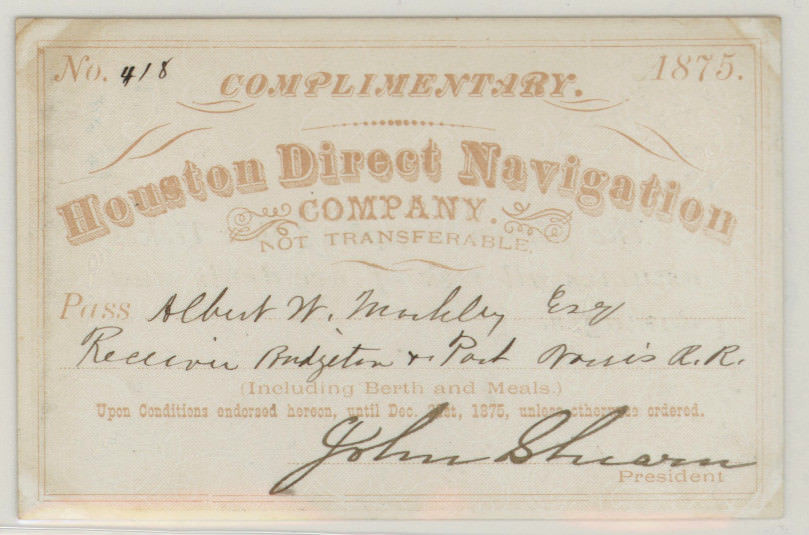 No. 418
COMPLIMENTARY.
1875.
Houston Direct Navigation
COMPANY.
NOT TRANSFERABLE.
Pass Albert W. Markley Esq
Receiver Bridgeton & Port Norris R.R.
(Including Berth and Meals.)
Upon Conditions endorsed hereon, until Dec. 31st, 1875, unless otherwise ordered.
John Shearn
President